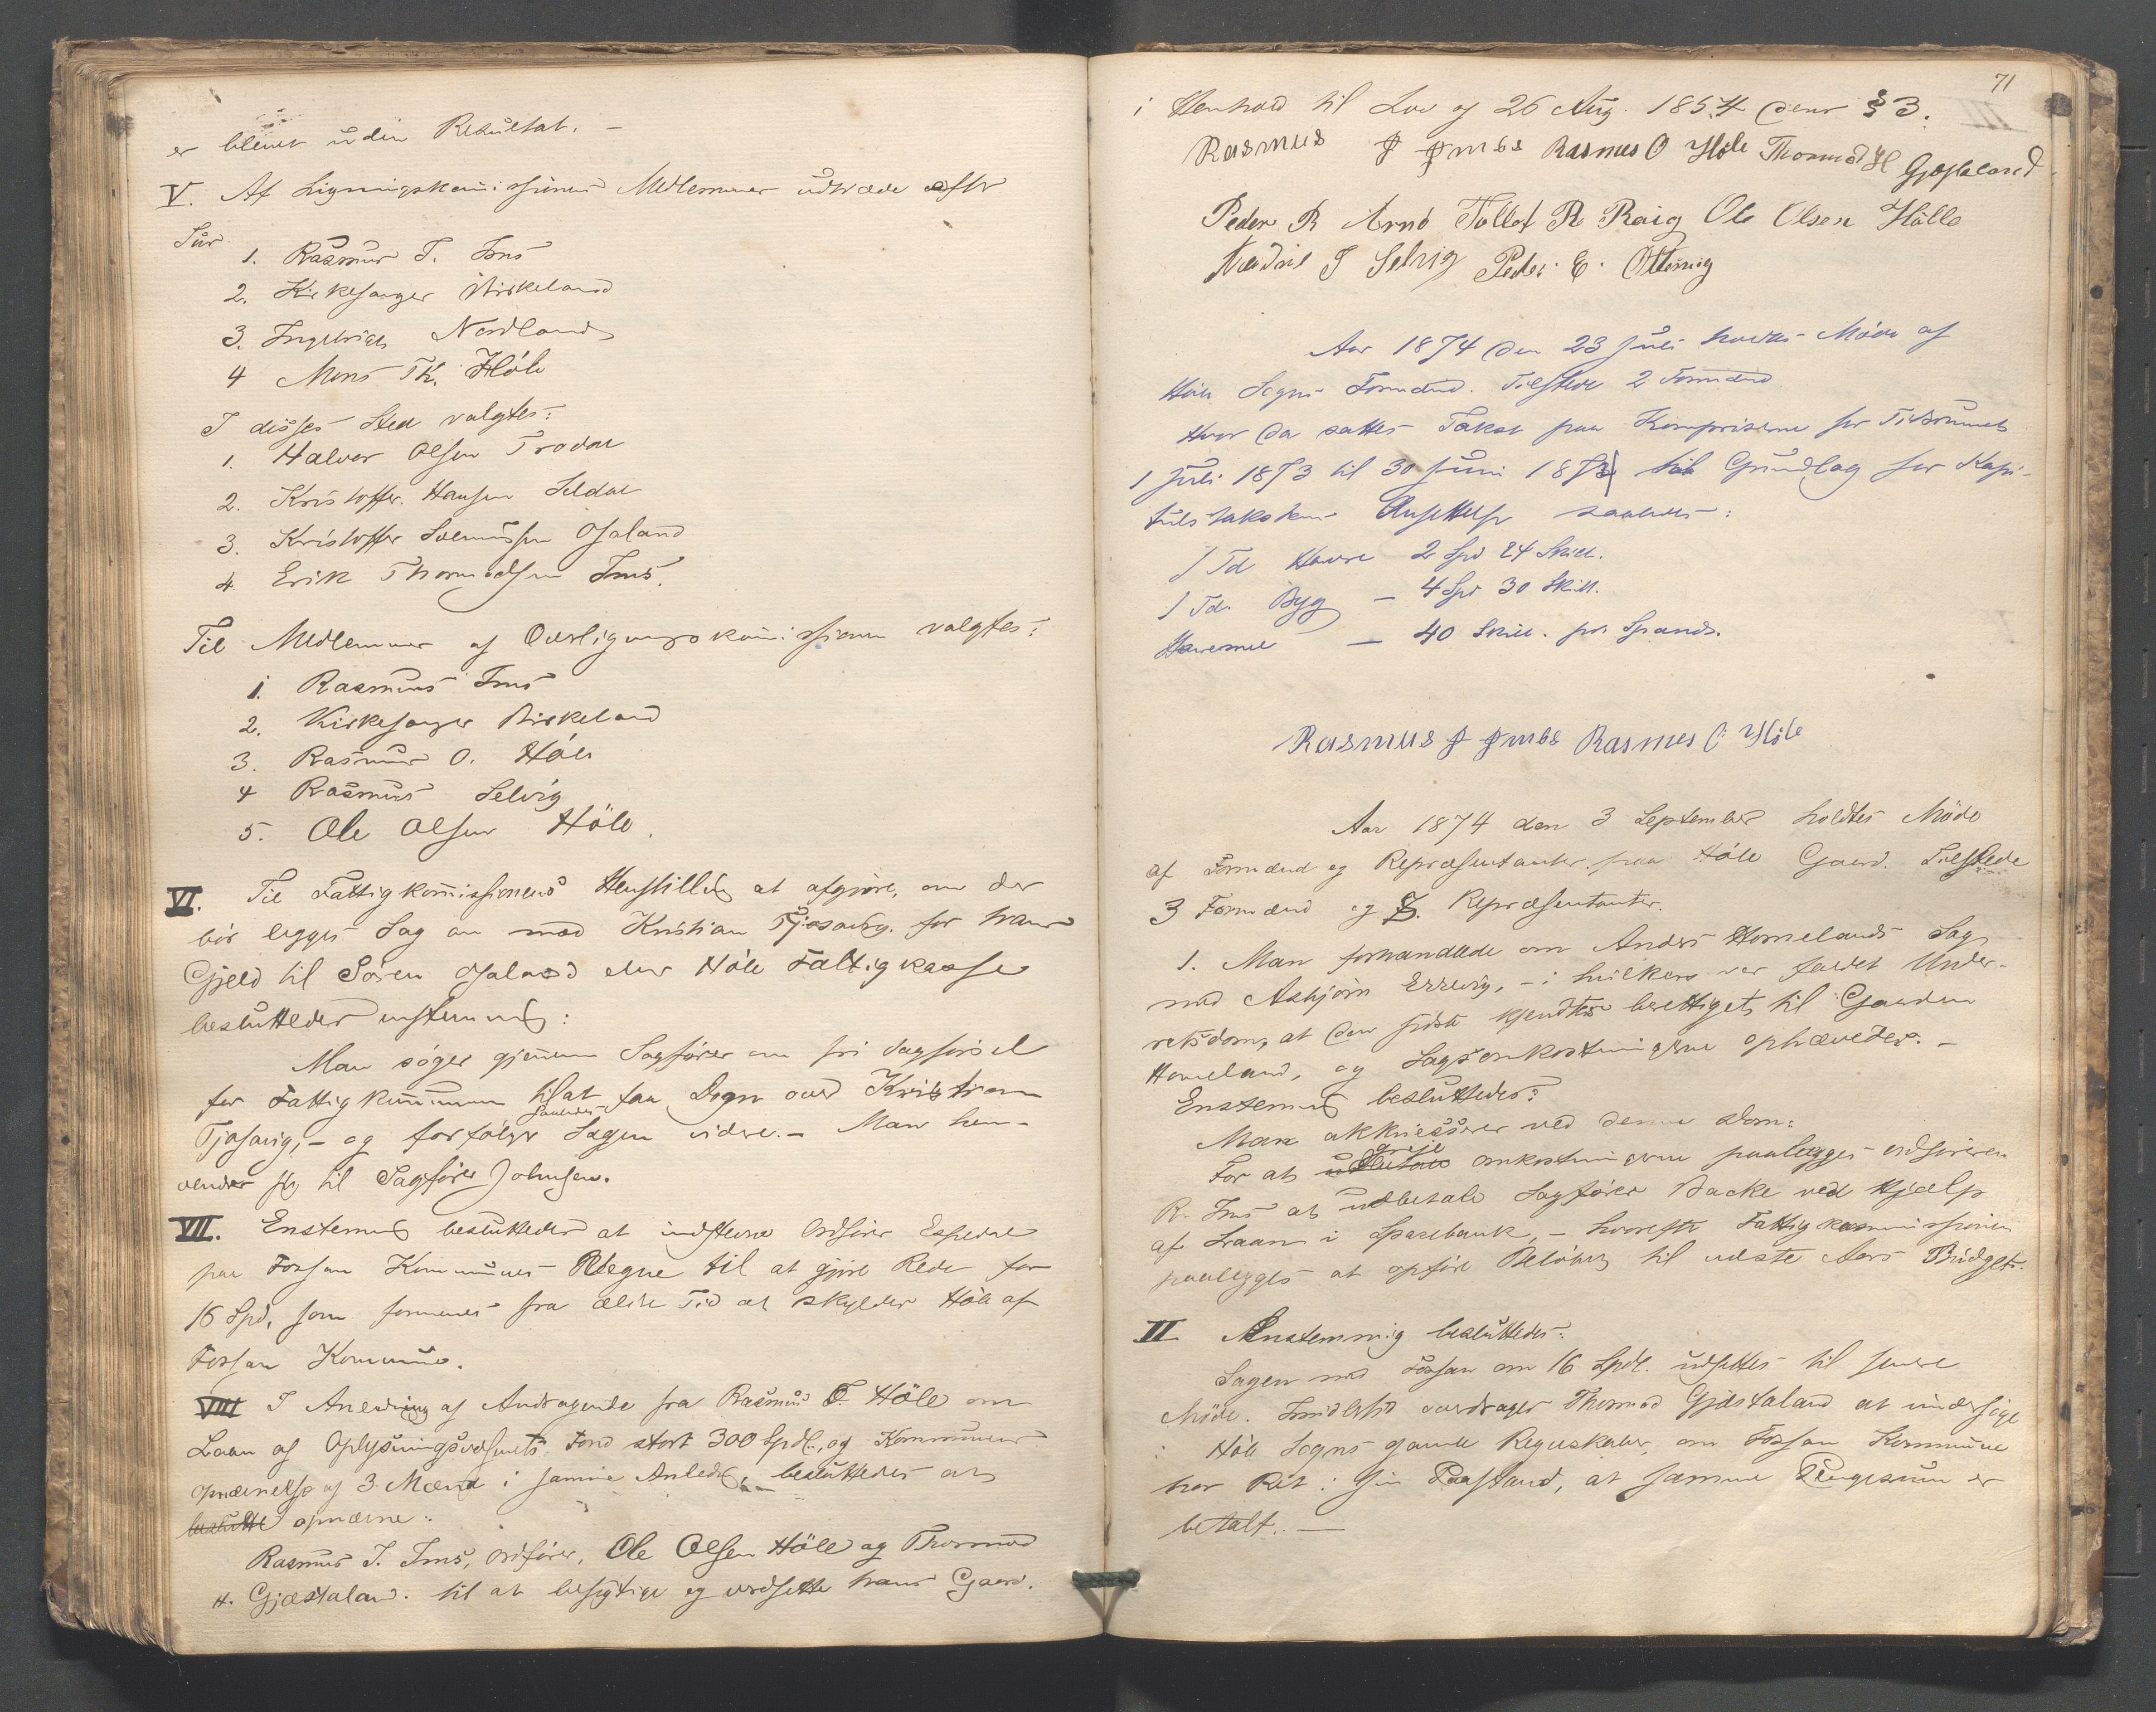 er blevet uden Resultat. —
V. Af Ligningskommissionens Medlemmer udtræde efter
Tur
1. Rasmus T. Ims
2. Kirkesanger Birkeland
3. Ingebrigt Nordland
4 Mons Th. Høle
I disses Sted valgtes:
1. Halvor Olsen Trodal
2. Kristoffer Hansen Seldal
3. Kristoffer Osaland
4. Erik Thormodsen Ims.
Til Medlemmer af Overligningskommissionen valgtes:
1. Rasmus Ims
2. Kirkesanger Birkeland
3. Rasmus O. Høle
4 Rasmus Selvig
5. Ole Olsen Høle.
VI. Til Fattigkommissionens Henstilling at afgjøre, om der
bør lægges Sag an mod Kristian for hans
Gjeld til Sören Osaland eller Höle Fattigkasse
besluttedes enstemmig:
Man søger gjennem Sagfører om fri Sagførsel
for Fattigkommunen til at faa Dom over Kristian
Tjosavig, – og forfølger saaledes Sagen videre. – Man hen-
vender sig til Sagfører Johnsen.
VII. Enstemmig besluttedes at indstevne Ordfører Espedal
paa Fossan Kommunes Vegne til at gjøre Rede for
16 Spd, som formenes fra ældre Tid at skyldes Høle af
Fossan Kommune.
VIII I Anledning af Andragende fra Rasmus T. Høle om
Laan af Oplysningsvæsenets Fond stort 300 Spdl., og Kommunens
opnævnelse af 3 Mænd i samme Anledng, besluttedes at
beslutte opnævne:
Rasmus T. Ims, Ordfører, Ole Olsen Höle og Thormod
H. Gjæstaland. til at besigtige og værdsette hans Gaard.
71
i Henhold til Lov af 26 Aug. 1854 dens § 3.
Rasmus T Imbs Rasmus O Høle Thormod H Gjesteland.
Peder R Arnø Tollef R Raig Ole Olsen Hölle
J Selvig Peder E. Ottøvig
Aar 1874 den 23 Juli holdtes Møde af
Høle Sogns Formænd. Tilstede 2 Formænd
Hvor da sattes Takst paa Kornpriserne for Tidsrummet
1 Juli 1873 til 30 Juni 1874 til Grundlag for Kapi-
tuls takstens Ansettelse saaledes:
1 Td Havre 2 Spd 24 Skill.
1 Td. Byg – 4 Spd 30 Skill.
Havremel – 40 Skill. pr. Spands.
Rasmus T Imbs Rasmus O Høle
Aar 1874 den 3 September holdtes Möde
af Formænd og Repræsentanter paa Höle Gaard. Tilstede
3 Formænd og Repræsentanter.
1. Man forhandlede om Anders Homelands Sag
mod Asbjørn Ereevig, – i hvilken var faldet Under-
retsdom, at den sidste kjendtes berettiget til Gaarden
Homeland, og Sagsomkostningerne ophævedes. –
Enstemmig besluttedes:
Man akkviescerer ved denne Dom:
For at greje omkostningerne paalægges ordføreren
R. Ims at udbetale Sagfører Backe ved Hjælp
af Laan i Sparebank, – hvorefter Fattigkommissionen
paalegges at opføre Beløbet til næste Aars Budget.
II Enstemmig besluttedes:
Sagen mod Fossan om 16 Spdl. udsættes til senere
Møde. Imidlertid overdrages Thormod Gjæstaland at undersøge
i Høle Sogns gamle Regnskaber, om Fossan Kommune
har Ret i sin Paastand, at samme Pengesum er
betalt. —